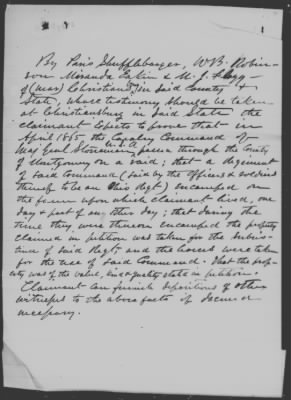 By Paris Shufflebarger, W.B. Robin-
son Miranda Eakin & M. J. Flagg -
of (near) Christiansburg, in said County &
State, whose testimony should be taken
at Christiansburg in said State the
claimant Expects to prove that in
April 1865 the Cavalry Command of
Maj Genl Stoneman, U.S.A. passed through the County
of Montgomery on a raid; that a Regiment
of said Command (said by the officers & soldiers
thereof to be an Regt) encamped on
the farm upon which claimant lived, one
day & part of another day; that during the
time they were thereon encamped the property
claimed in petition was taken for the subsis-
tence of said Regt. and the horses were taken
for the use of said Command. That the prop-
erty was of the value, and quantity stated in petition.
Claimant can furnish depositions of other
witnesses to the above facts if deemed
necessary.